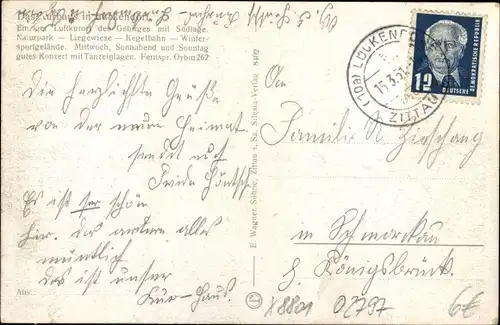 Das Kurhaus in Lückendorf.
Einziger Luftkurort des Gebirges mit Südlage.
Naturpark — Liegewiese — Kegelbahn — Winter-
sportgelände. Mittwoch, Sonnabend und Sonntag
gutes Konzert mit Tanzeinlagen. Fernspr. Oybin 262
Die herzlichste Grüße
von der neuen Heimat
sendet euch
Es ist sehr schön
hier. Das andere alles
mündlich
das ist unser
Kur-Haus.
E. Wagner Söhne, Zittau i. Sa. Silesia-Verlag 8492
(10a) LÜCKENDORF
15.3.51
ü. ZITTAU
12
DEUTSCHE
DEMOKRATISCHE REPUBLIK
An
Familie N. Hirschang
in Schmorkau
b. Königsbrück.
X8801 02797 6€